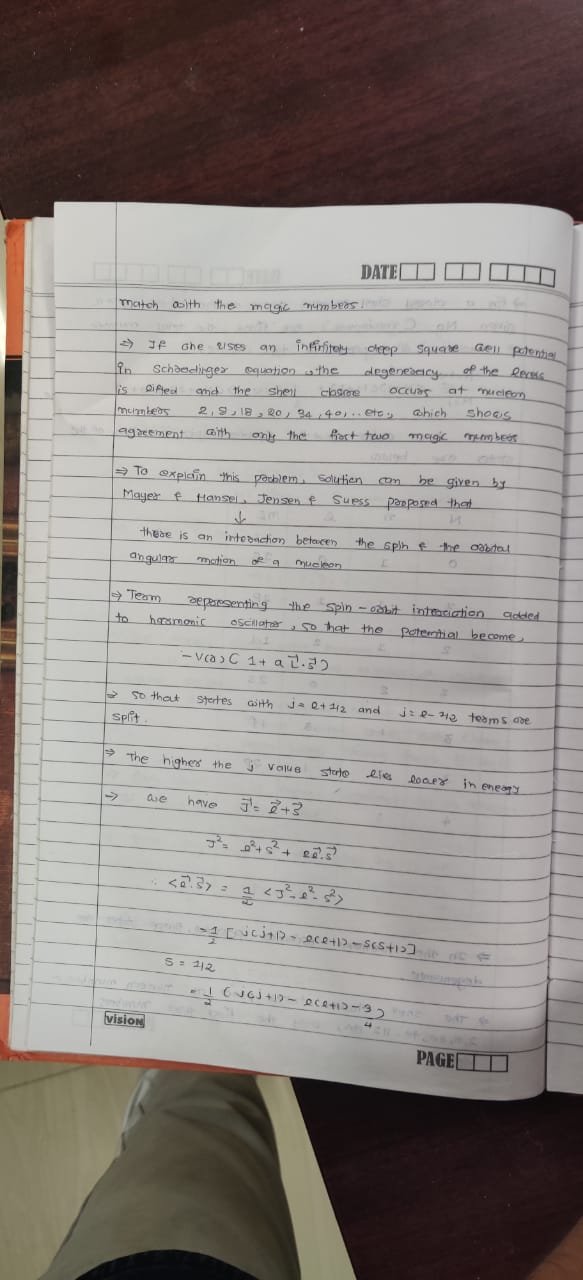 DATE
match with the magic numbers.
⇒ If one uses an infinitely deep square well potential
in Schroedinger equation, the degeneracy of the levels
is lifted and the shell closure occurs at nucleon
numbers 2, 8, 18, 20, 34, 40, .. etc, which shows
agreement with only the first two magic numbers
⇒ To explain this problem, solution can be given by
Mayer & Hansel, Jensen & Suess proposed that
↓
there is an interaction between the spin & the orbital
angular motion of a nucleon
⇒ Term representing the spin-orbit interaction added
to harmonic oscillator, so that the potential become,
-V(r) ( 1 + a l⃗.s⃗ )
⇒ so that states with j = l + 1/2 and j = l - 1/2 terms are
split.
⇒ The higher the j value state lies lower in energy
→ we have J⃗ = l⃗ + s⃗
J² = l² + s² + 2l⃗.s⃗
∴ <l⃗.s⃗> = 1/2 <J² - l² - s²>
= 1/2 [ j(j+1) - l(l+1) - s(s+1) ]
s = 1/2
= 1/2 ( j(j+1) - l(l+1) - 3/4 )
vision
PAGE